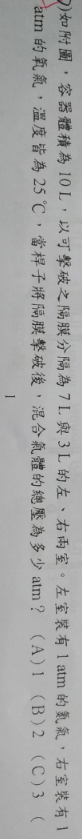 )如附圖，容器體積為 10 L，以可擊破之隔膜分隔為 7 L 與 3 L 的左、右兩室。左室裝有 1 atm 的氦氣，右室裝有
atm 的氧氣，溫度皆為 25 ℃，當桿子將隔膜擊破後，混合氣體的總壓為多少 atm？ (A) 1 (B) 2 (C) 3 (
1